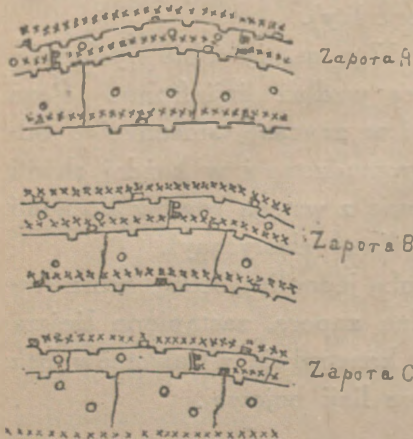 Zapora A
Zapora B
Zapora C